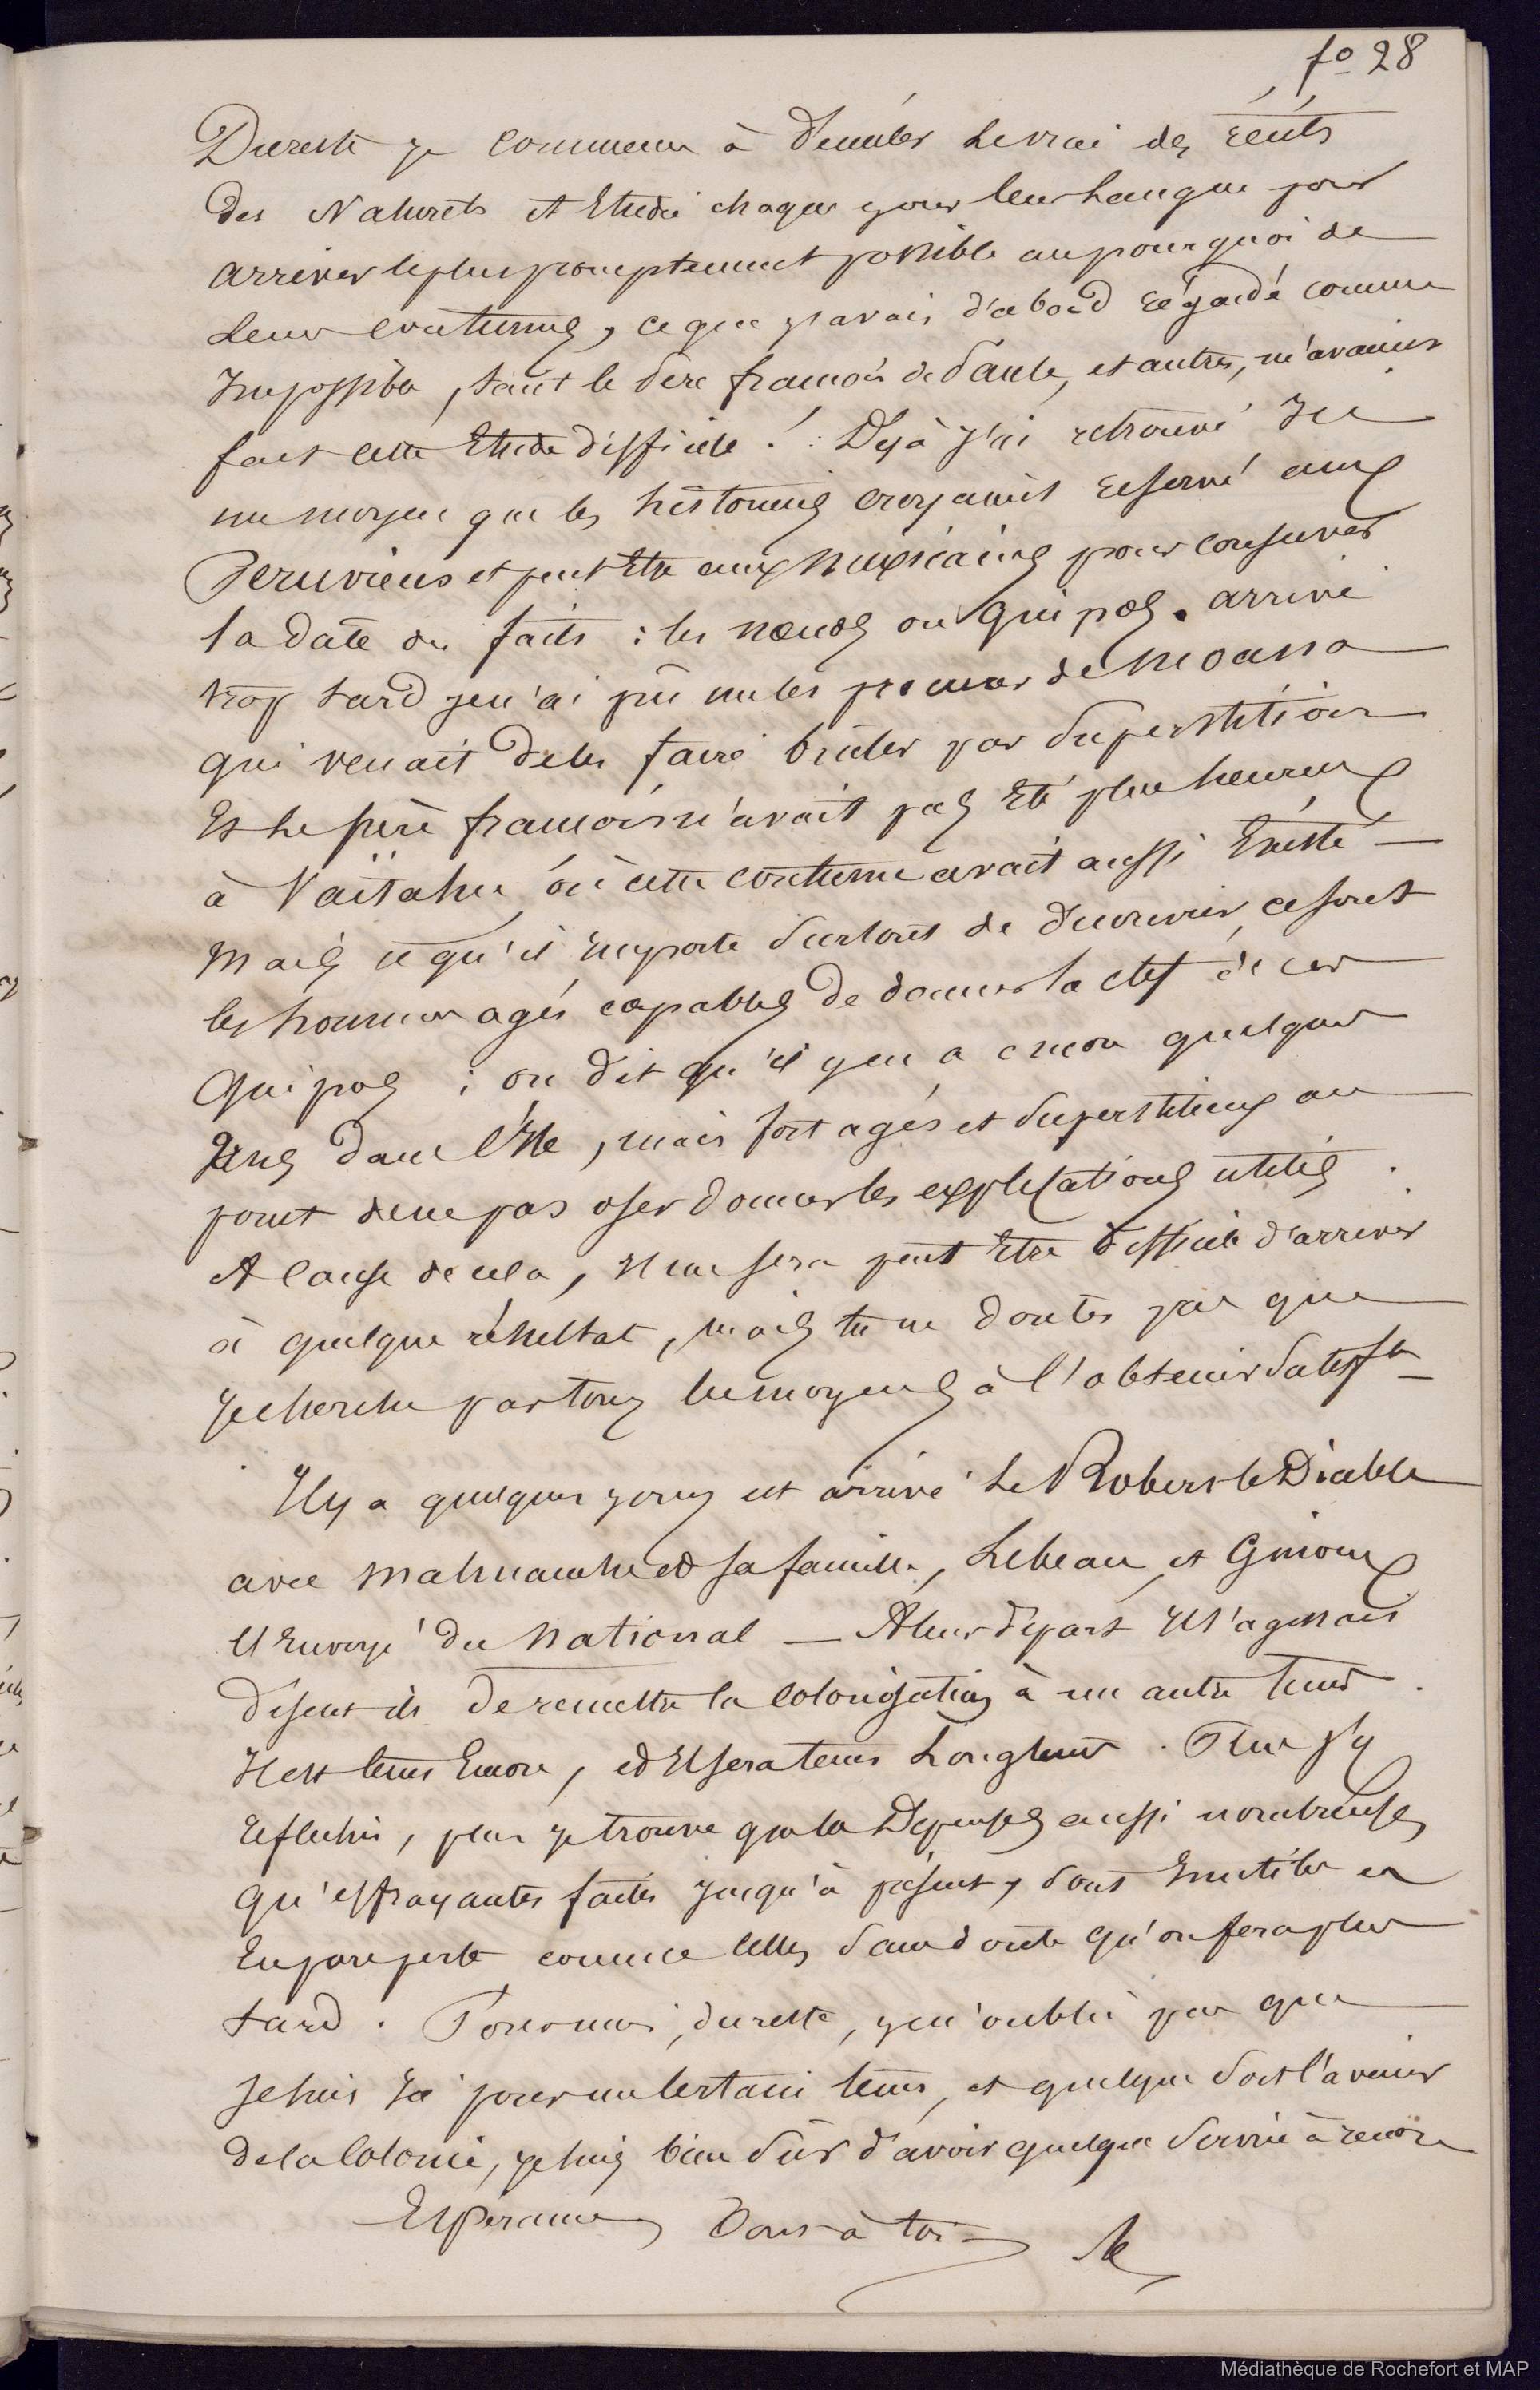 fo 28
Dureste je commence à démêler le vrai des récits
des Naturels et Etudie chaque jour leur Langue pour
arriver le plus promptement possible au pourquoi de
Leurs coutumes, ce que j'avais d'abord régardé comme
Impossible, tant le Père françois de Paule, et autres, m'avaient
fait cette Etude difficile ! Déjà j'ai retrouvé Ici
un moyen que les historiens croyaient reservé aux
Peruviens et peut Etre aux Mexicains pour conserver
la date des faits : les nœuds ou Quipos. arrivé
trop tard je n'ai pû me les procurer de Moana
qui venait de les faire brûler par Superstition
Et Le père françois n'avait pas Eté plus heureux
à Vaïtahu, où cette coutume avait aussi Existé
Mais ce qu'il Importe Surtout de découvrir, ce sont
les hommes agés capables de donner la clef de ces
Quipos ; on dit qu'il y en a encore quelques
Uns dans l'Ile, mais fort agés et Superstitieux au
point de ne pas oser donner les explications utiles.
A cause de cela, Il me sera peut Etre difficile d'arriver
à quelque résultat, mais tu ne doutes pas que
Je cherche par tous les moyens à l'obtenir Satisft
Il y a quelques jours est arrivé Le Robert le Diable
avec ed sa famille, Lebeau, et Ginoux
l'Envoyé du National — A leur départ Il s'agissait
disent ils de remettre la Colonisation à un autre tems.
Il est tems Encore, ed Il sera tems Longtems. Plus j'y
réfléchis, plus je trouve que les Dépenses aussi nombreuses
qu'effrayantes faites jusqu'à présent, sont Inutiles et
En pure perte comme celles Sans doute qu'on fera plus
tard. Pour moi, du reste, je n'oublie pas que
Je suis Ici pour un certain tems, et quelque Soit l'avenir
de la Colonie, je suis bien Sûr d'avoir quelque Service à rendre
Espérance Tout à toi